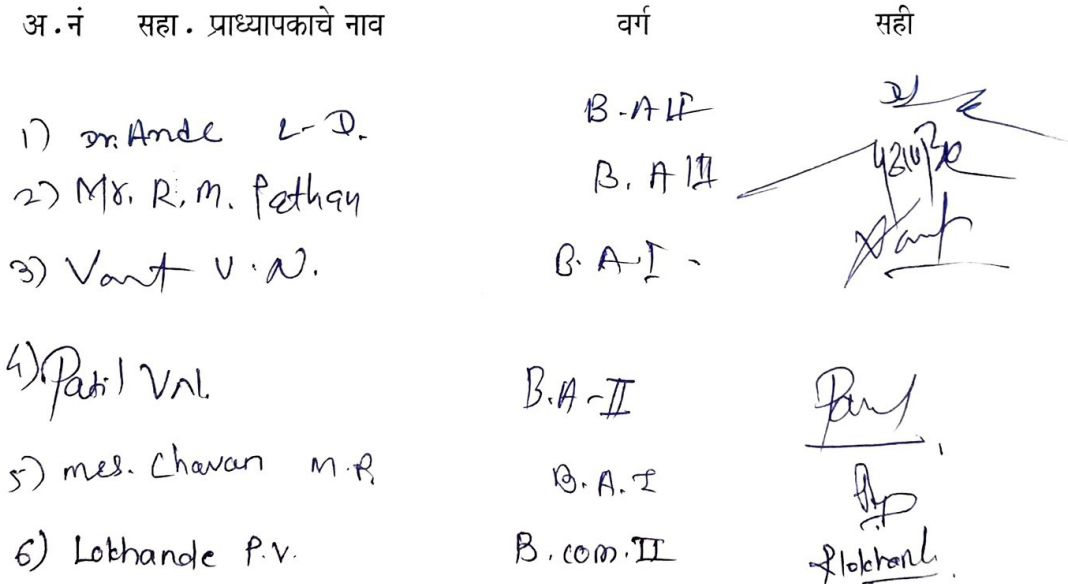 अ.नं सहा. प्राध्यापकाचे नाव वर्ग सही
1) Dr. Ande L-D. B-A II
2) Mr. R.M. Pathan B. A III
3) Vant V.N. B.A-I
4) Patil V.N. B.A-II
5) mes. Chavan M.R B.A.I
6) Lokhande P.V. B.com.II